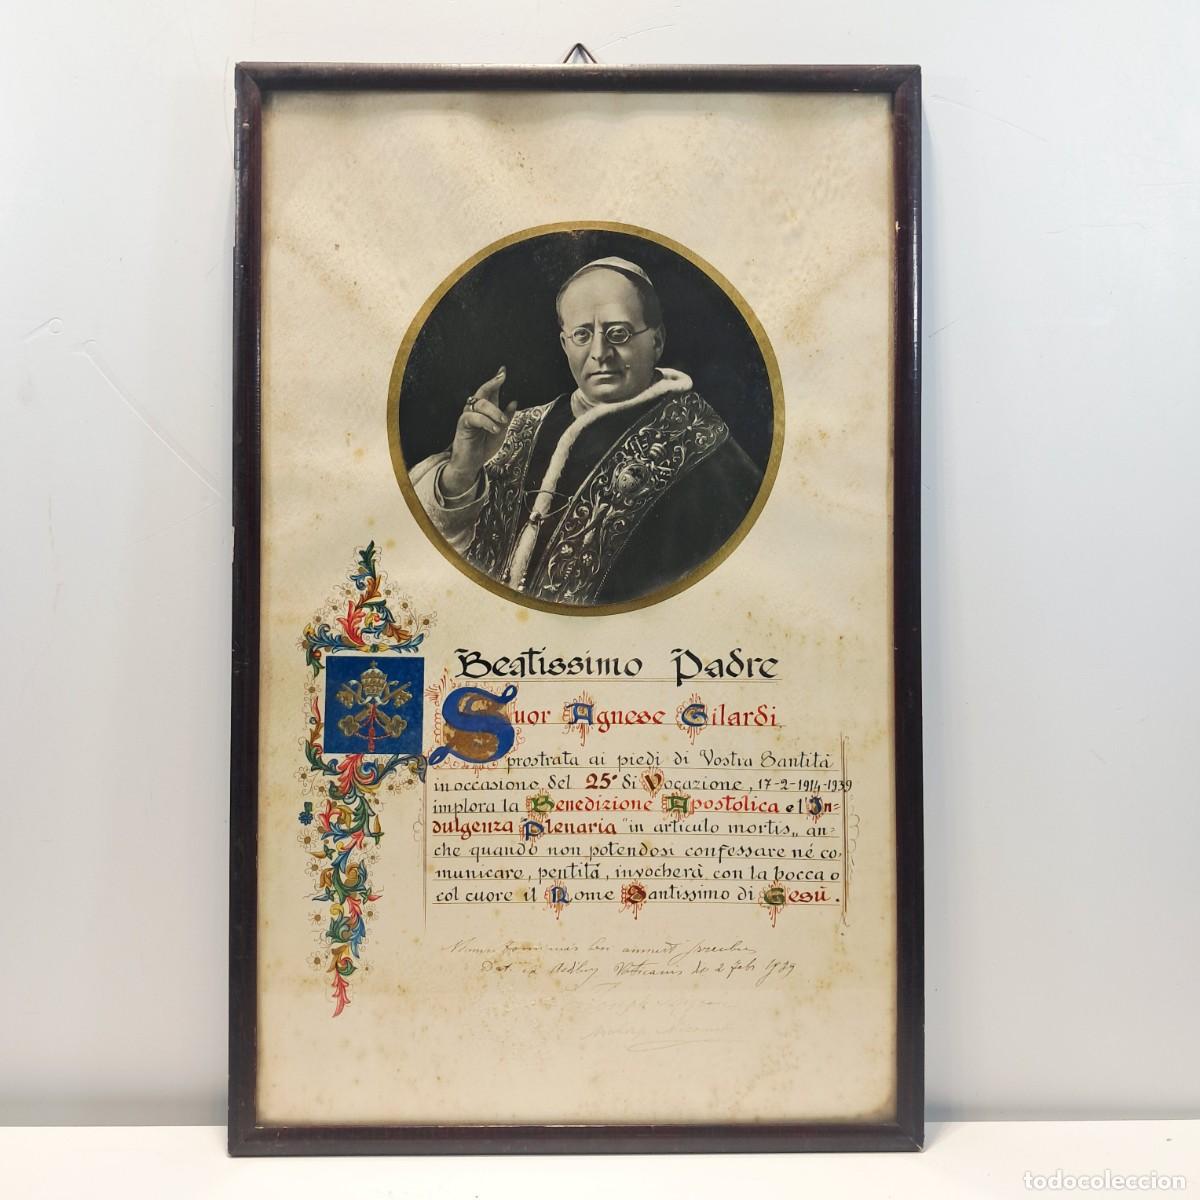 Beatissimo Padre
Suor Agnese Gilardi
prostrata ai piedi di Vostra Santità
in occasiono del 25° di Vocazione, 17-2-1914-1939
implora la Benedizione Apostolica e l'In=
dulgenza Plenaria "in articulo mortis„ an=
che quando non potendosi confessare né co,
municare, pentita, invocherà con la bocca o
col cuore il Nome Santissimo di Gesù.
Dat ex Aedibus Vaticanis die 2 feb 1939
todocoleccion